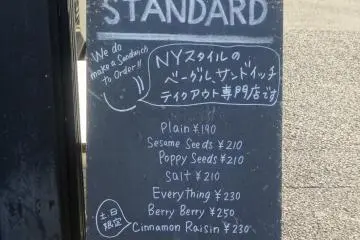 STANDARD
We do
make a Sandwich
to Order!!
NYスタイルの
ベーグルサンドイッチ
テイクアウト専門店です
Plain ¥190
Sesame Seeds ¥210
Poppy Seeds ¥210
Salt ¥210
Everything ¥230
Berry Berry ¥250
土日
限定
Cinnamon Raisin ¥230